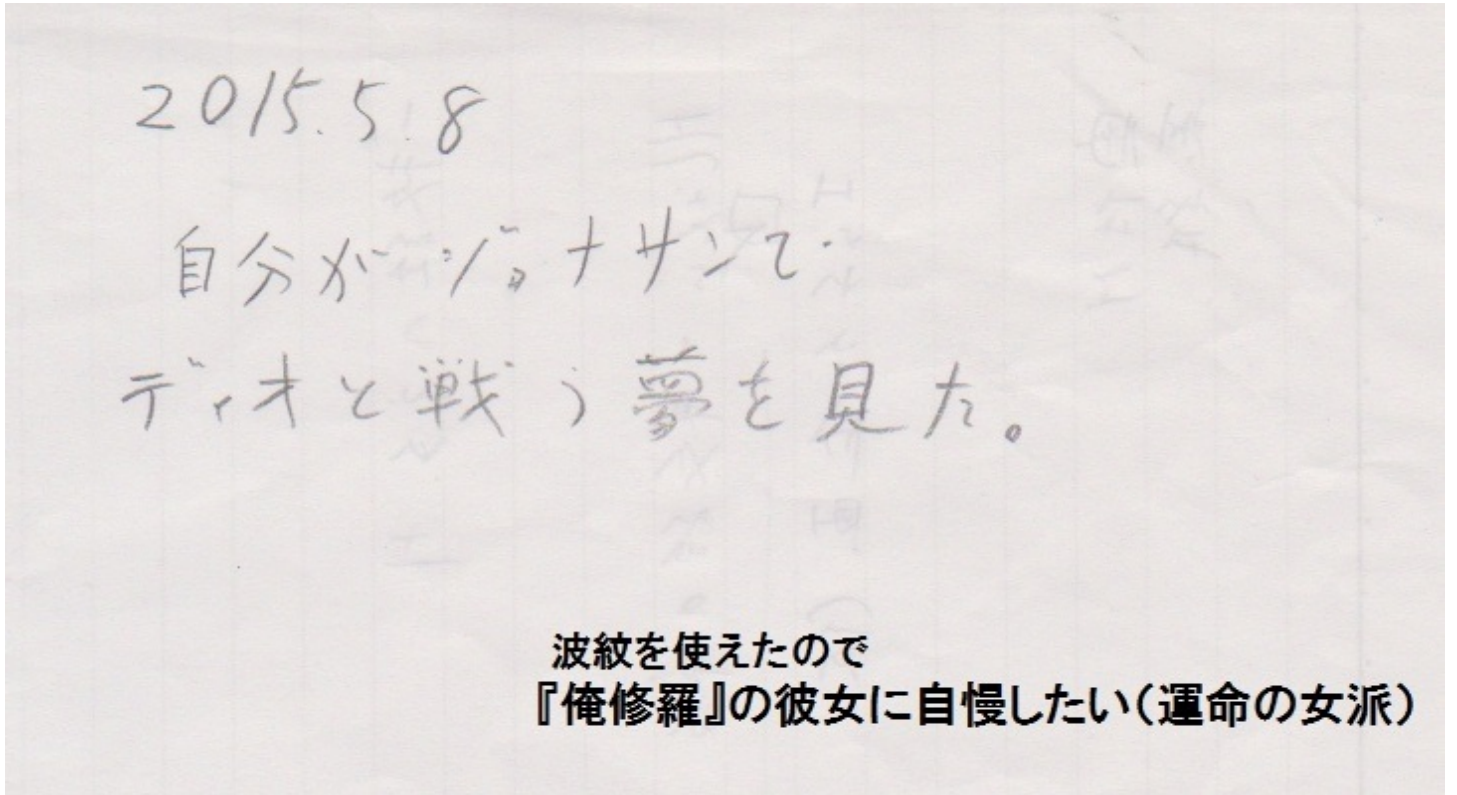 2015.5.8
自分がジョナサンで
ディオと戦う夢を見た。
波紋を使えたので
『俺修羅』の彼女に自慢したい(運命の女派)